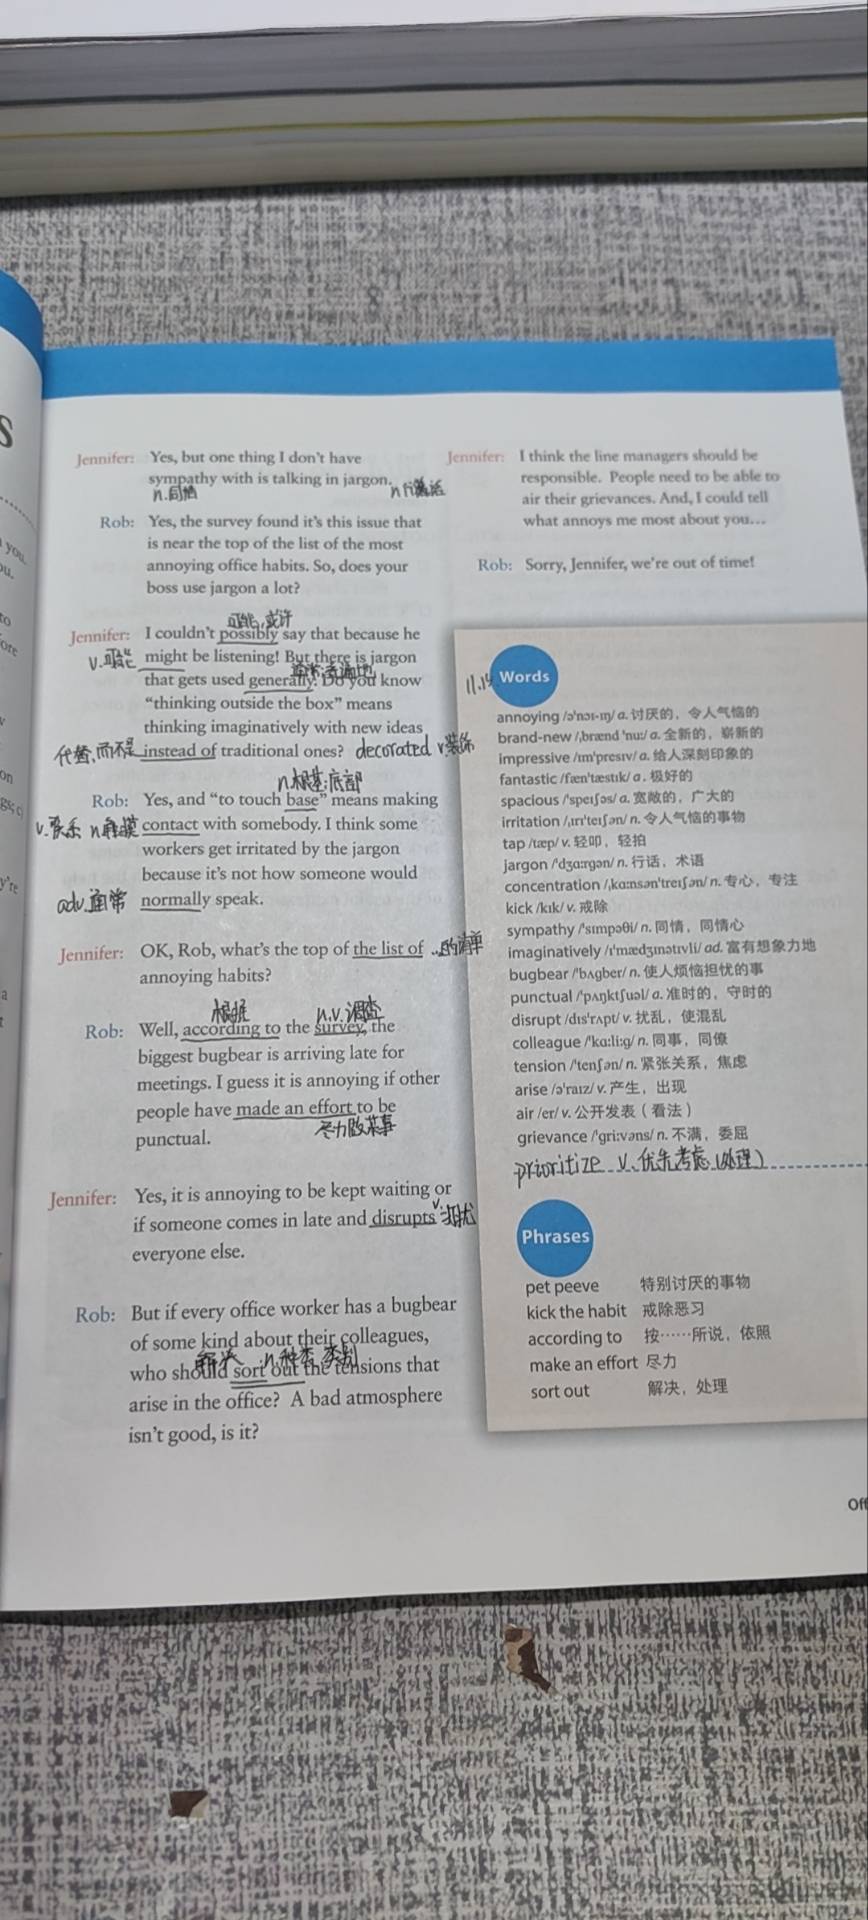 Jennifer: Yes, but one thing I don't have
sympathy with is talking in jargon.
n.同情
n行话
Rob: Yes, the survey found it's this issue that
is near the top of the list of the most
annoying office habits. So, does your
boss use jargon a lot?
可能,或许
Jennifer: I couldn't possibly say that because he
v.可能 might be listening! But there is jargon
that gets used generally. Do you know
"thinking outside the box" means
thinking imaginatively with new ideas
代替,而不是 instead of traditional ones? decorated v装饰
n.根基;底部
Rob: Yes, and "to touch base" means making
contact with somebody. I think some
workers get irritated by the jargon
because it's not how someone would
adv.通常 normally speak.
Jennifer: OK, Rob, what's the top of the list of ...的清单
annoying habits?
根据 n.v.调查
Rob: Well, according to the survey, the
biggest bugbear is arriving late for
meetings. I guess it is annoying if other
people have made an effort to be
尽力做某事
punctual.
Jennifer: Yes, it is annoying to be kept waiting or
if someone comes in late and disrupts v.扰
everyone else.
Rob: But if every office worker has a bugbear
of some kind about their colleagues,
解决 n.种类 类别
who should sort out the tensions that
arise in the office? A bad atmosphere
isn't good, is it?
Jennifer: I think the line managers should be
responsible. People need to be able to
air their grievances. And, I could tell
what annoys me most about you...
Rob: Sorry, Jennifer, we're out of time!
Words
annoying /ə'nɔɪ-ɪŋ/ a. 讨厌的，令人气恼的
brand-new /ˌbrænd 'nuː/ a. 全新的，崭新的
impressive /ɪm'presɪv/ a. 给人深刻印象的
fantastic /fæn'tæstɪk/ a. 极好的
spacious /'speɪʃəs/ a. 宽敞的，广大的
irritation /ˌɪrɪ'teɪʃən/ n. 令人气恼的事物
tap /tæp/ v. 轻叩，轻拍
jargon /'dʒɑːrgən/ n. 行话，术语
concentration /ˌkɑmsən'treɪʃən/ n. 专心，专注
kick /kɪk/ v. 戒除
sympathy /'sɪmpəθi/ n. 同情，同情心
imaginatively /ɪ'mædʒɪnətɪvli/ ad. 富有想象力地
bugbear /'bʌgber/ n. 使人烦恼担忧的事
punctual /'pʌŋktʃuəl/ a. 准时的，守时的
disrupt /dɪs'rʌpt/ v. 扰乱，使混乱
colleague /'kɑːliːg/ n. 同事，同僚
tension /'tenʃən/ n. 紧张关系，焦虑
arise /ə'raɪz/ v. 产生，出现
air /er/ v. 公开发表（看法）
grievance /'griːvəns/ n. 不满，委屈
prioritize v.优先考虑(处理)
Phrases
pet peeve 特别讨厌的事物
kick the habit 戒除恶习
according to 按……所说，依照
make an effort 尽力
sort out 解决，处理